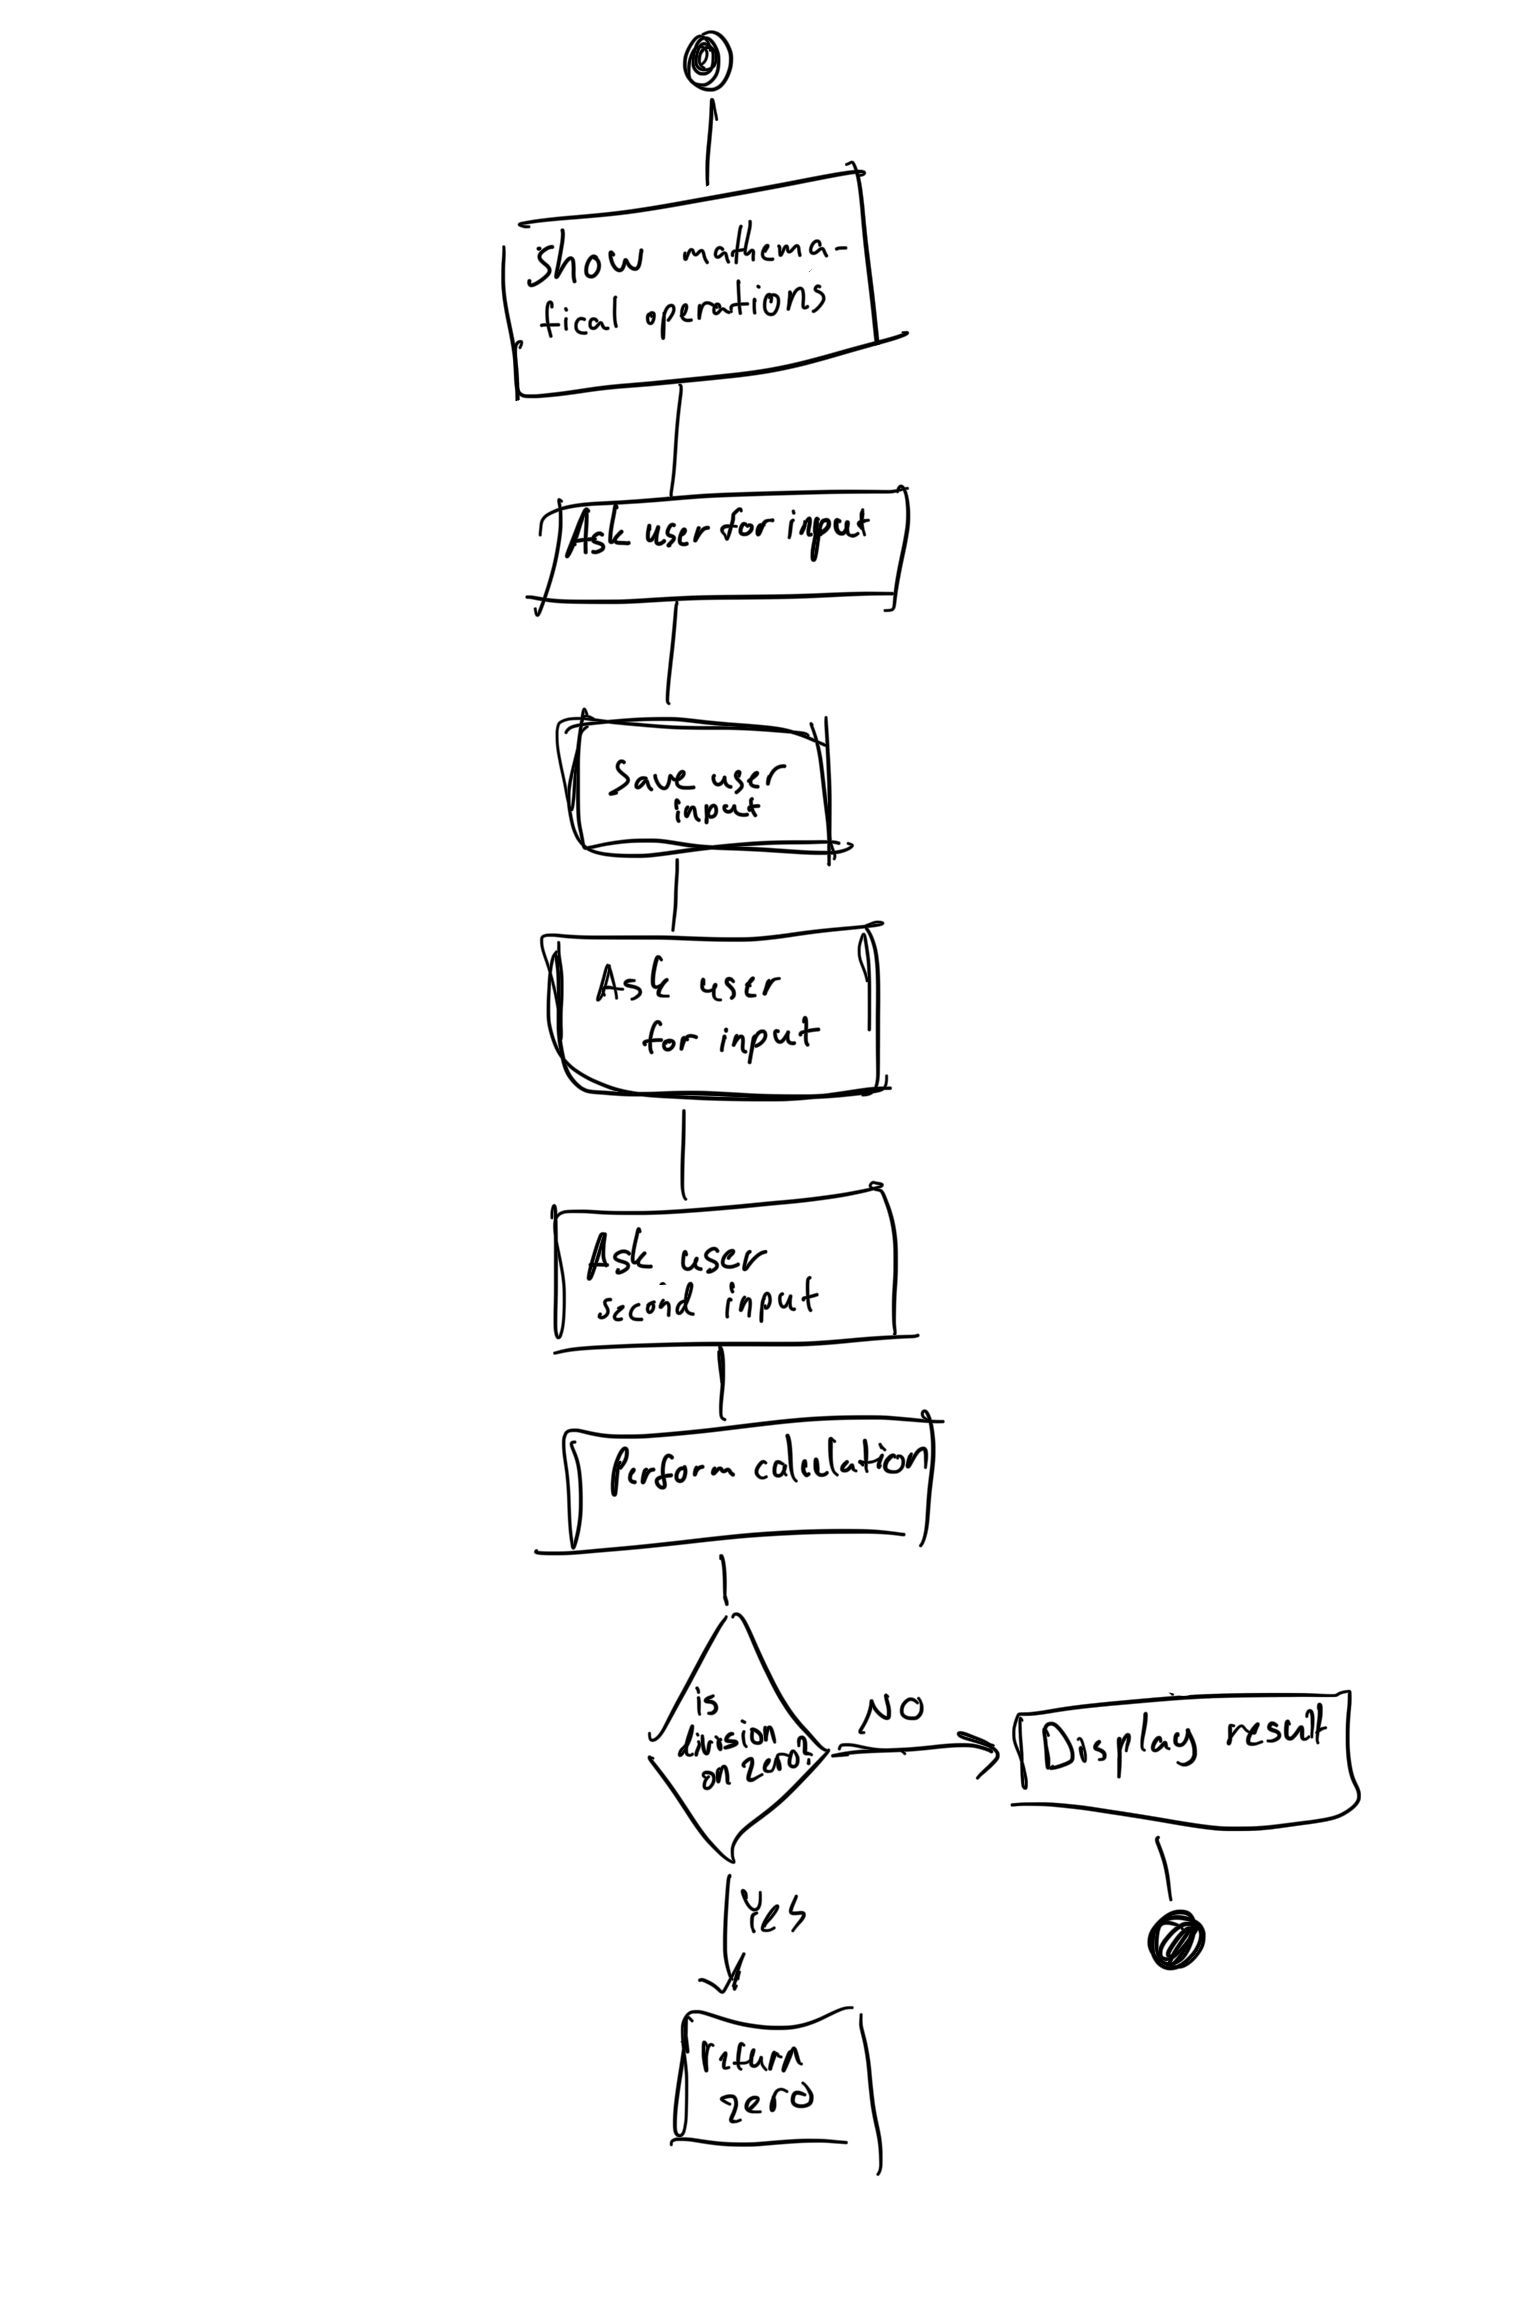 Show mathema-
tical operations
Ask user for input
Save user
input
Ask user
for input
Ask user
second input
Perform calculation
is
division
on zero?
NO
Display result
Yes
return
zero